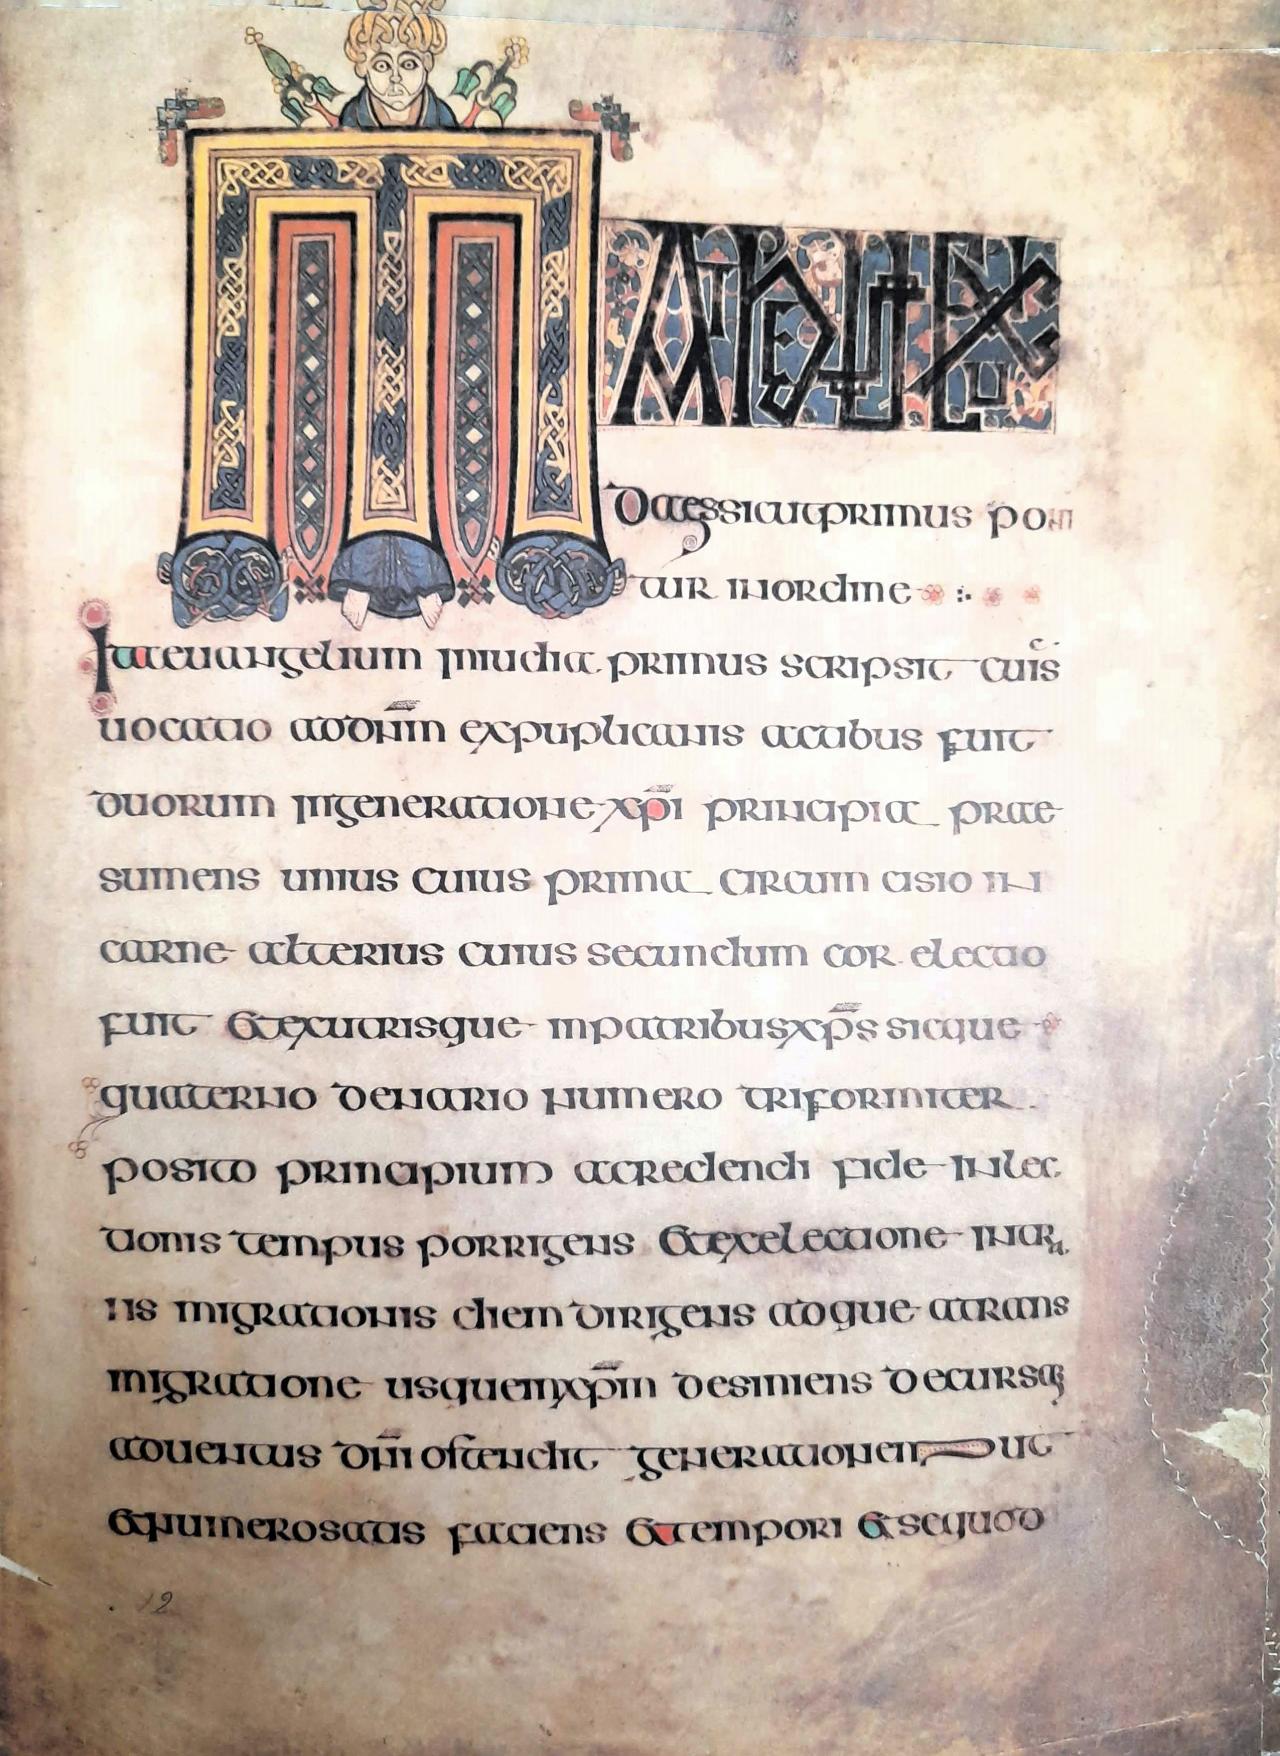 MATHEUS EX IU
daessicutprimus poni
tur inordine
Itaeuangelium iniudia primus scripsit cuiꝰs
uocatio addnm̄ expuplicanis actibus fuit
duorum ingeneratione xp̄i principia prae
sumens unius cuius prima circum cisio in
carne alterius cuius secundum cor electio
fuit etexutrisque inpatribusxp̄s sicque
quaternio denario numero triformiter
posito principium acredendi fide inlec
tionis tempus porrigens etexelectione intra
ns migrationis diem dirigens adque atrans
migratione usqueinxp̄m desiniens decursā
aduentus dn̄i ostendit generationem ut
etnumerosatis faciens ettempori etsequod
12